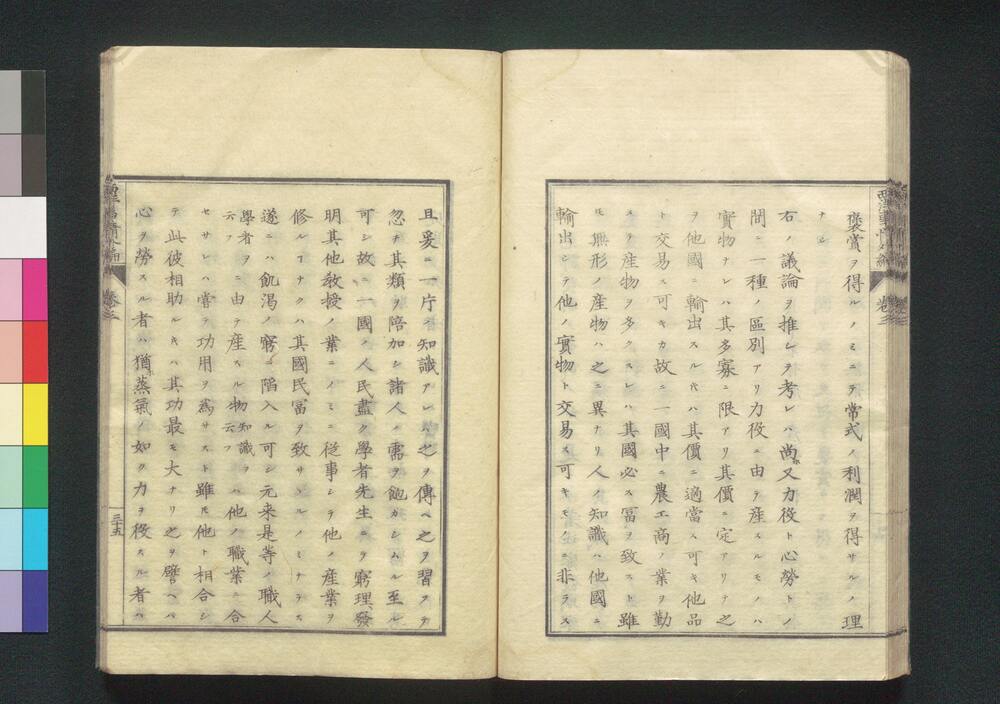 西洋事情外編 卷三
褒賞ヲ得ルノミニテ常式ノ利潤ヲ得サルノ理
ナシ
右ノ議論ヲ推シテ考レハ尚又力役ト心勞トノ
間ニ一種ノ區別アリ力役ニ由テ産スルモノハ
實物ナレハ其多寡ニ限アリ其價ニ定アリテ之
ヲ他國ニ輸出スルトキハ其價ニ適當ス可キ他品
ト交易ス可キカ故ニ一國中ニ農工商ノ業ヲ勤
ヌテ産物ヲ多クスレハ其國必ス冨ヲ致スト雖
モ無形ノ産物ハ之ニ異ナリ人ノ知識ハ他國ニ
輸出シテ他ノ實物ト交易ス可キモノニ非ラス
且爰ニ一片ノ知識アレハ之ヲ傳ヘ之ヲ習フテ
忽チ其類ヲ陪加シ諸人ノ需ヲ飽カシムルニ至ル
可シ故ニ一國ノ人民盡ク學者先生ニテ窮理發
明其他敎授ノ業ニノミニ從事シテ他ノ産業ヲ
修ルコナクハ其國民冨ヲ致サヽルノミナラス
遂ニハ飢渇ノ窮ニ陷入ル可シ元来是等ノ職人
學者ヲ云フニ由テ産スル物知識ヲ云フハ他ノ職業ニ合
セサレハ嘗テ功用ヲ爲サスト雖モ他ト相合シ
テ此彼相助ルキハ其功最モ大ナリ之ヲ譬ヘハ
心ヲ勞スル者ハ猶蒸氣ノ如ク力ヲ役スル者ハ
卷三
三十五